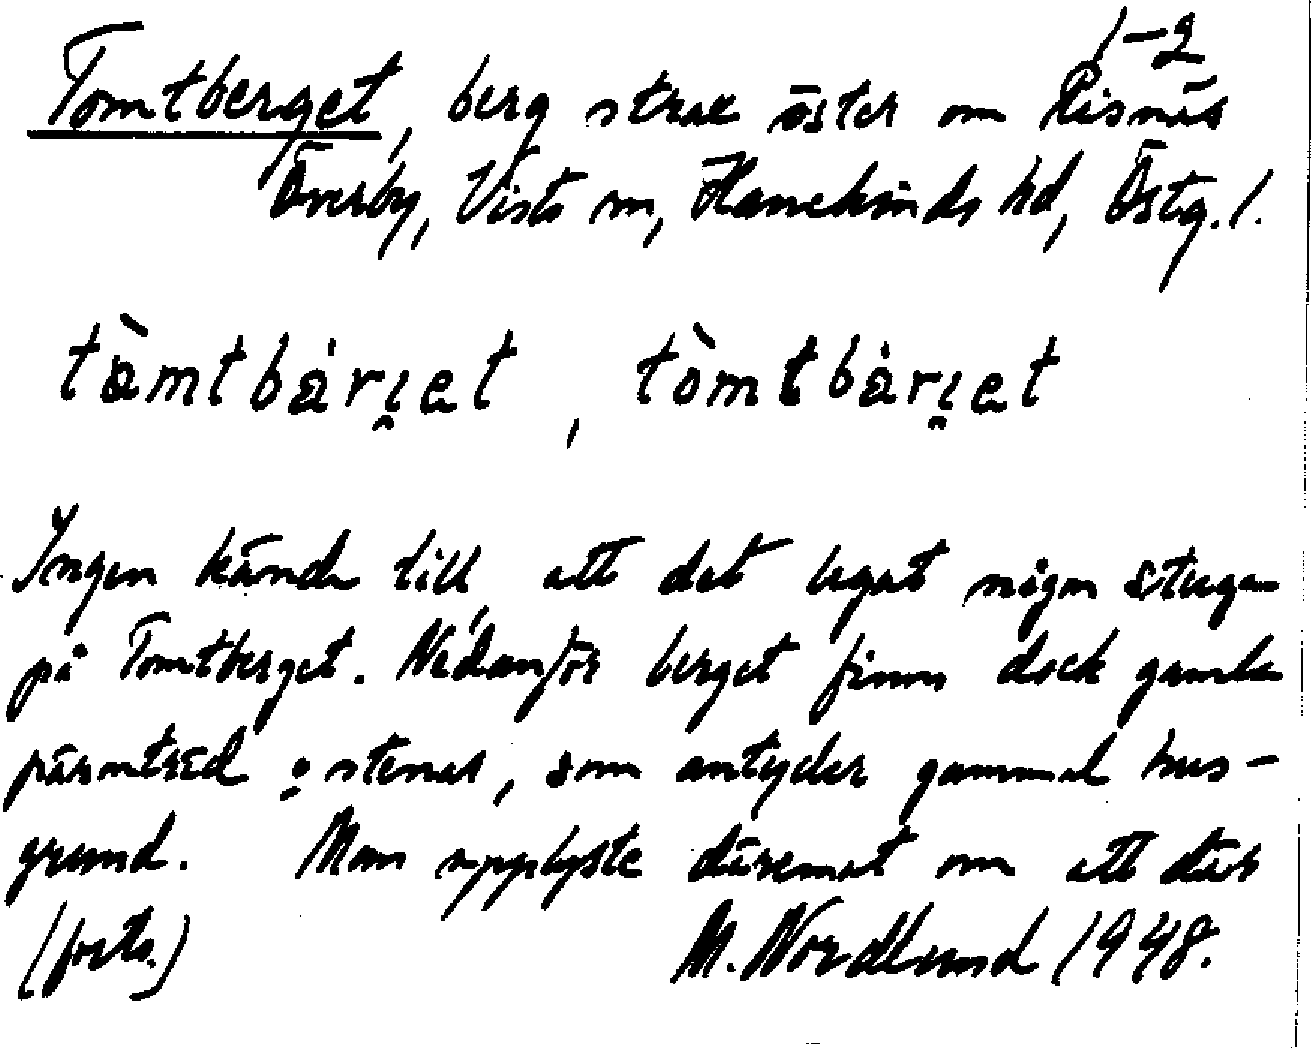 1-2
Tomtberget, berg strax öster om Risnäs
Överby, Vists sn, Hanekinds hd, Östg. l.
tàmtbár̤ı̯et, tòmtbàrı̯et
Ingen kände till att det legat någon stuga
på Tomtberget. Nedanför berget finns dock gamla
päronträd o stenar, som antyder gammal hus-
grund. Man upplyste däremot om att där
(forts.) M. Nordlund 1948.